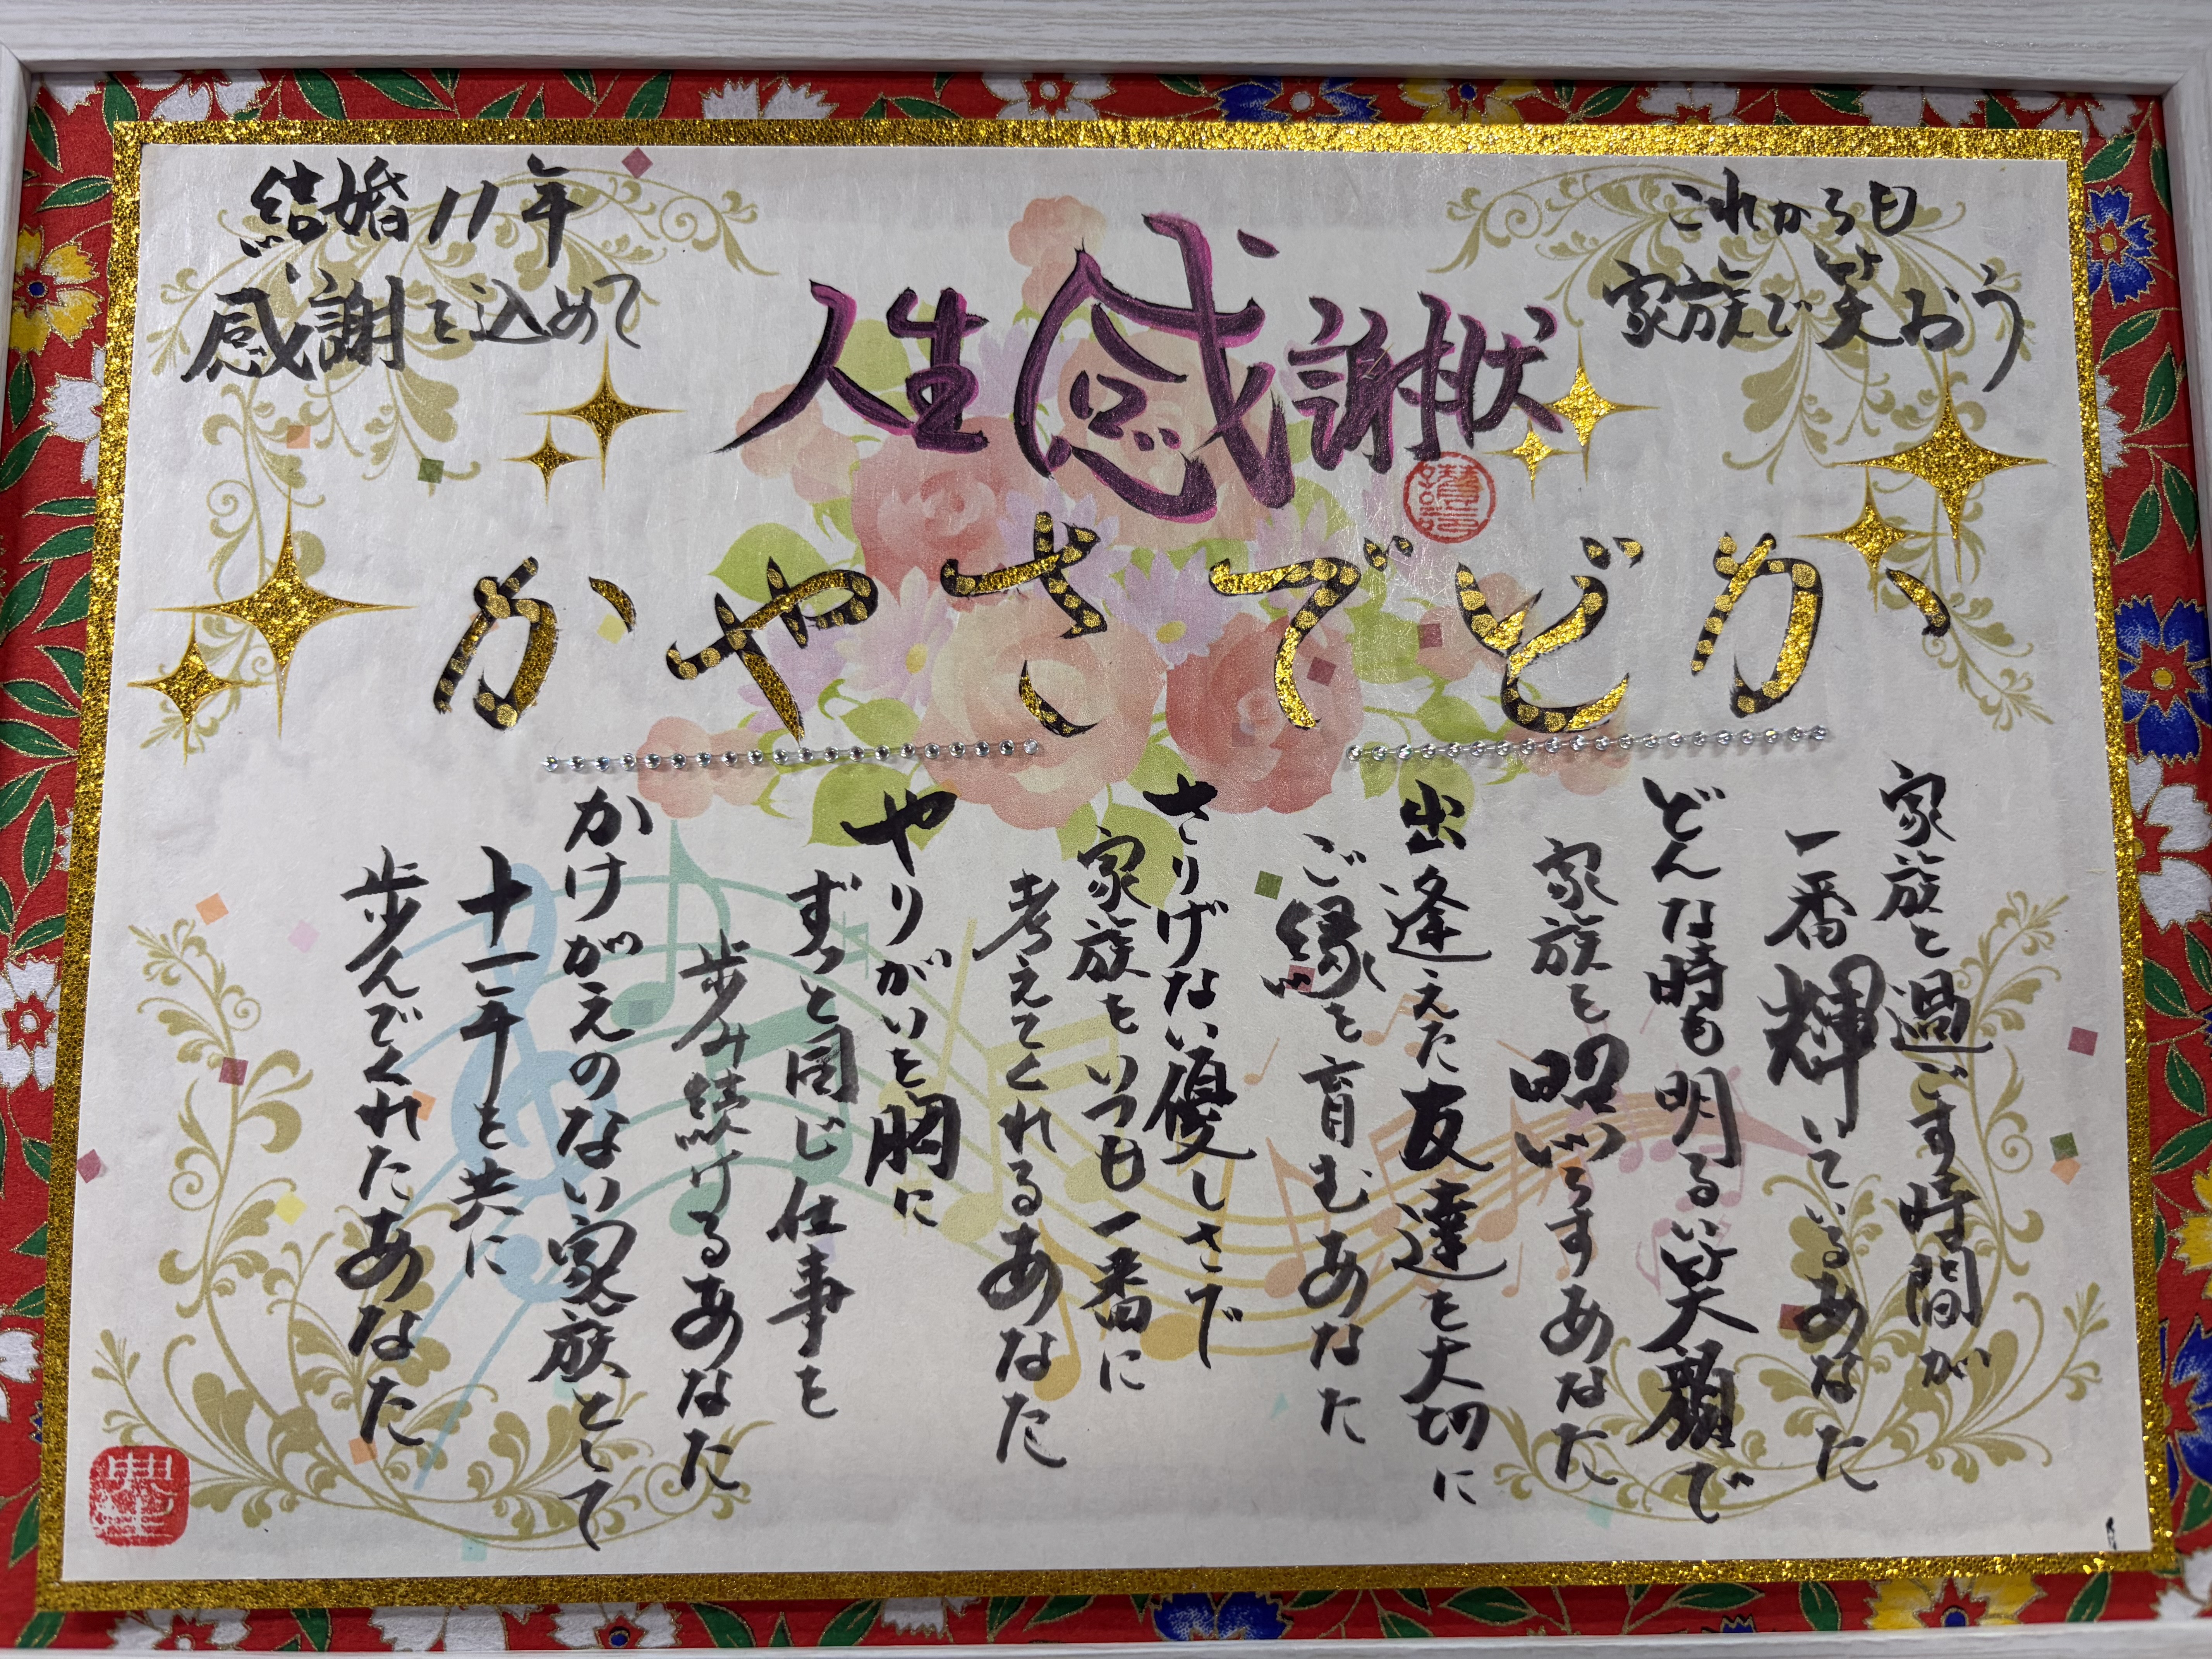 結婚11年
感謝を込めて
人生感謝状
これからも
家族で笑おう
かどでさやか
家族と過ごす時間が
一番輝いているあなた
どんな時も明るい笑顔で
家族を照らすあなた
出逢えた友達を大切に
ご縁を育むあなた
さりげない優しさで
家族をいつも一番に
考えてくれるあなた
やりがいを胸に
ずっと同じ仕事を
歩み続けるあなた
かけがえのない家族として
十一年を共に
歩んでくれたあなた